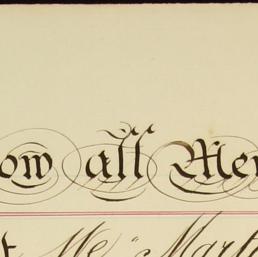 ow all Men
t Me "Mart